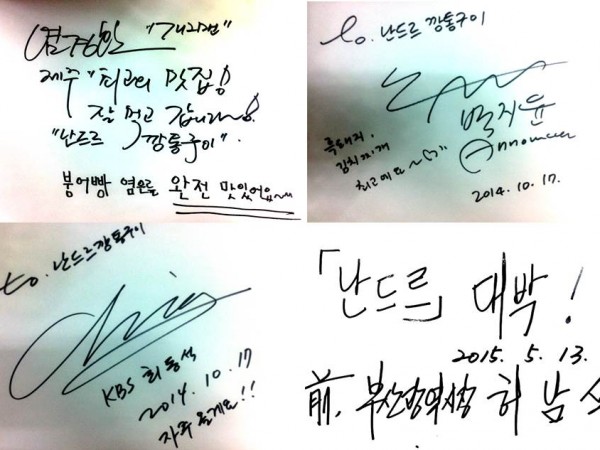 염경환 "개그맨"
제주 "최고의 맛집!
잘 먹고 갑니다~!
"난드르 깡통구이".
붕어빵 염은률 완전 맛있어요~~
to. 난드르 깡통구이
박지윤
Announcer
흑돼지,
김치찌개
최고예요~
2014. 10. 17.
to. 난드르깡통구이
KBS 최동석
2014. 10. 17
자주 올게요!!
「난드르」 대박!
2015. 5. 13.
前. 부산광역시장 허남